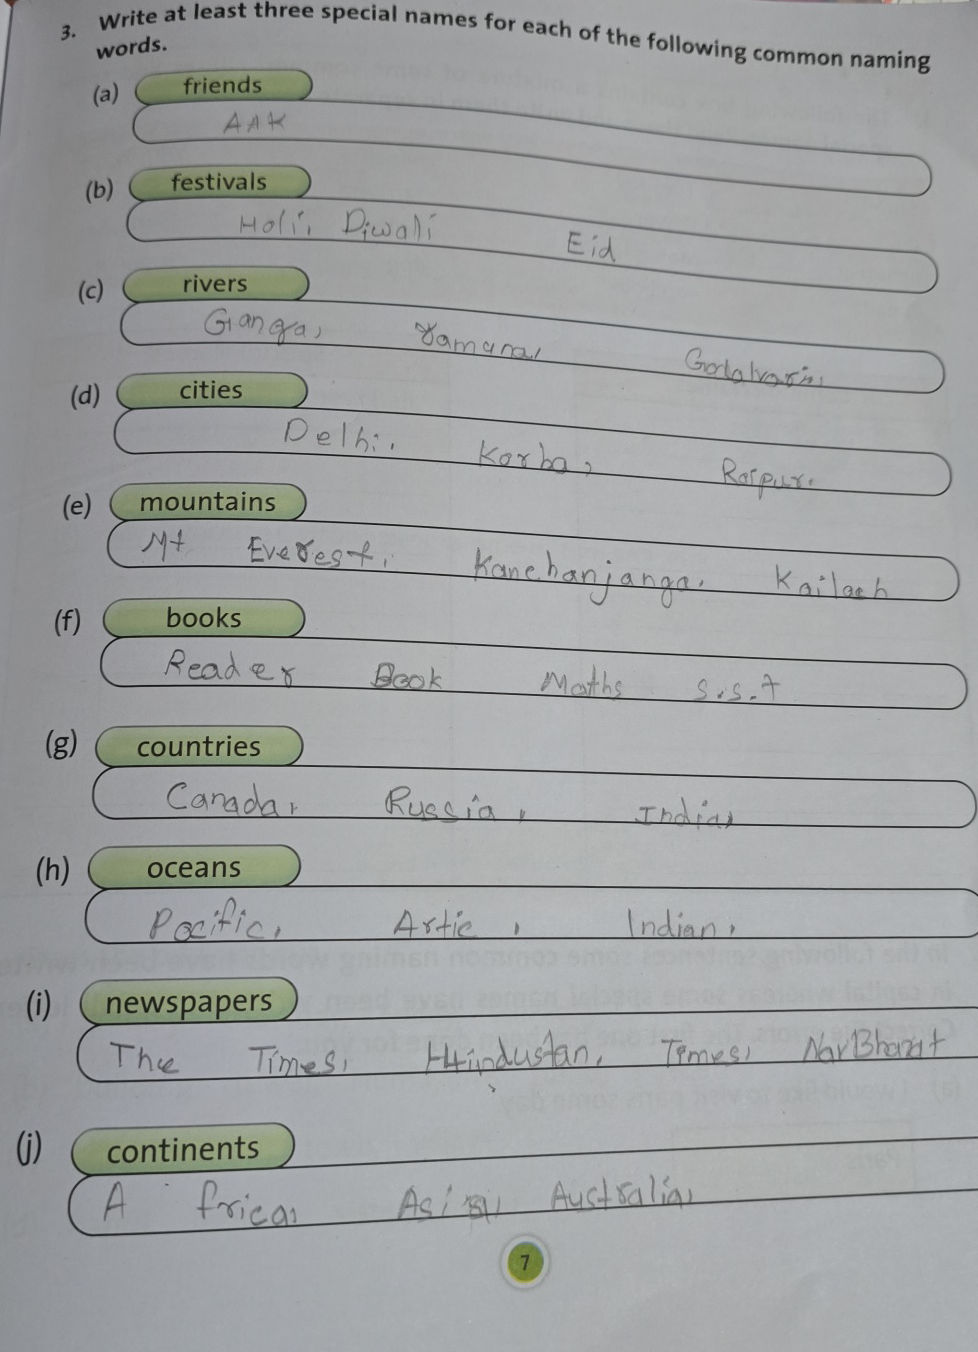 3. Write at least three special names for each of the following common naming
words.
(a) friends
AAK
(b) festivals
Holi, Diwali Eid
(c) rivers
Ganga, Yamuna, Godalvarin,
(d) cities
Delhi, Korba, Raipur.
(e) mountains
Mt Everest, Kanehanjanga, Kailash
(f) books
Reader Book Maths S.S.t
(g) countries
Canada, Russia, India,
(h) oceans
Pacific, Artic, Indian,
(i) newspapers
The Times, Hindustan, Times, NavBharat
(j) continents
A frica, Asia, Australia,
7